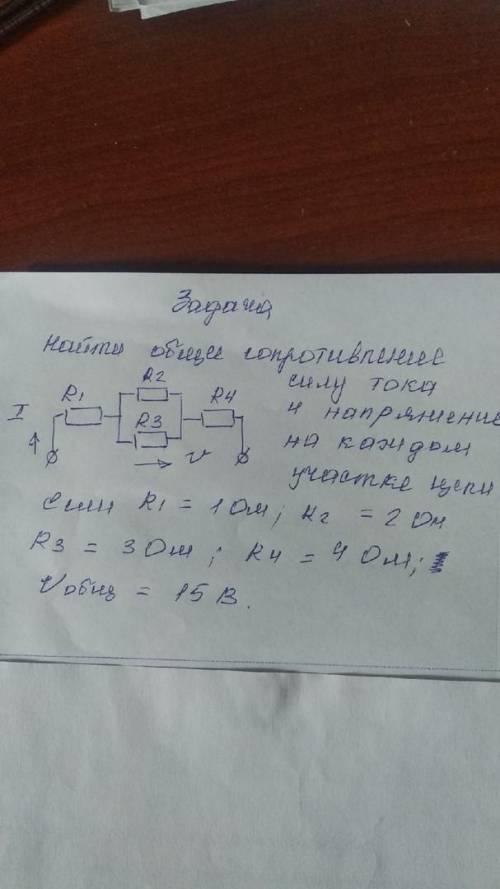 Задача
Найти общее сопротивление
силу тока
и напряжение
на каждом
участке цепи
R1
R2
R3
R4
I
U
Если R1 = 1 Ом; R2 = 2 Ом
R3 = 3 Ом; R4 = 4 Ом;
Uобщ = 15 В.